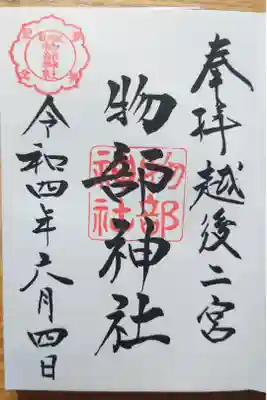 奉拝越後二宮
物部神社
物部
神社
令和四年六月四日